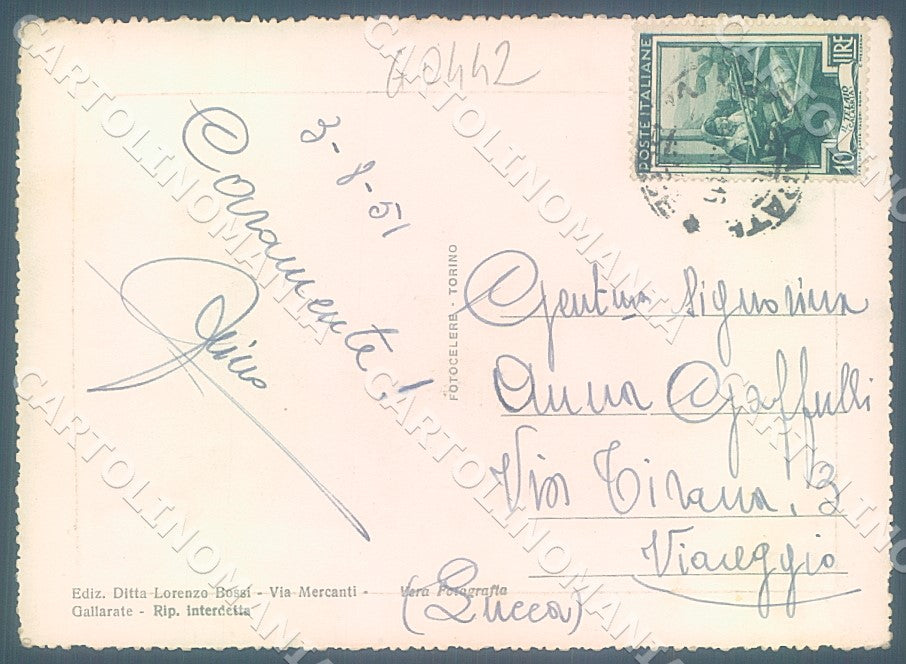 60442
POSTE ITALIANE
LIRE
10
3-8-51
Caramente!
FOTOCELERE - TORINO
Gent.ma Signorina
Anna Gaffulli
Via Tirana, 3
Viareggio
(Lucca)
Ediz. Ditta Lorenzo Bossi - Via Mercanti - Vera Fotografia
Gallarate - Rip. interdetta
CARTOLINOMANIA